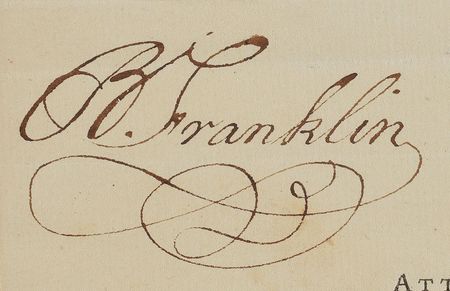 B. Franklin
ATT